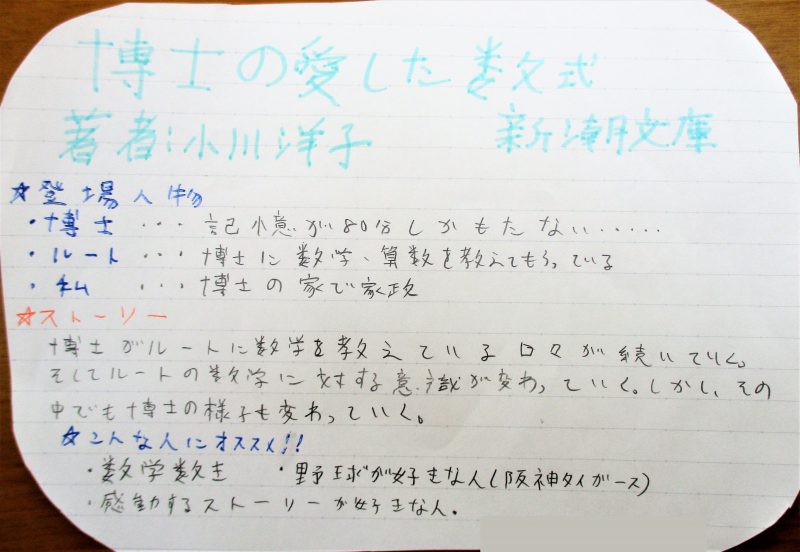 博士の愛した数式
著者:小川洋子 新潮文庫
☆登場人物
・博士 ・・・ 記憶が80分しかもたない・・・・・・
・ルート ・・・ 博士に数学、算数を教えてもらっている
・私 ・・・ 博士の家で家政
☆ストーリー
博士がルートに数学を教えている日々が続いていく。
そしてルートの数学に対する意識が変わっていく。しかし、その
中でも博士の様子も変わっていく。
☆こんな人にオススメ!!
・数学数き ・野球が好きな人(阪神タイガース)
・感動するストーリーが好きな人。